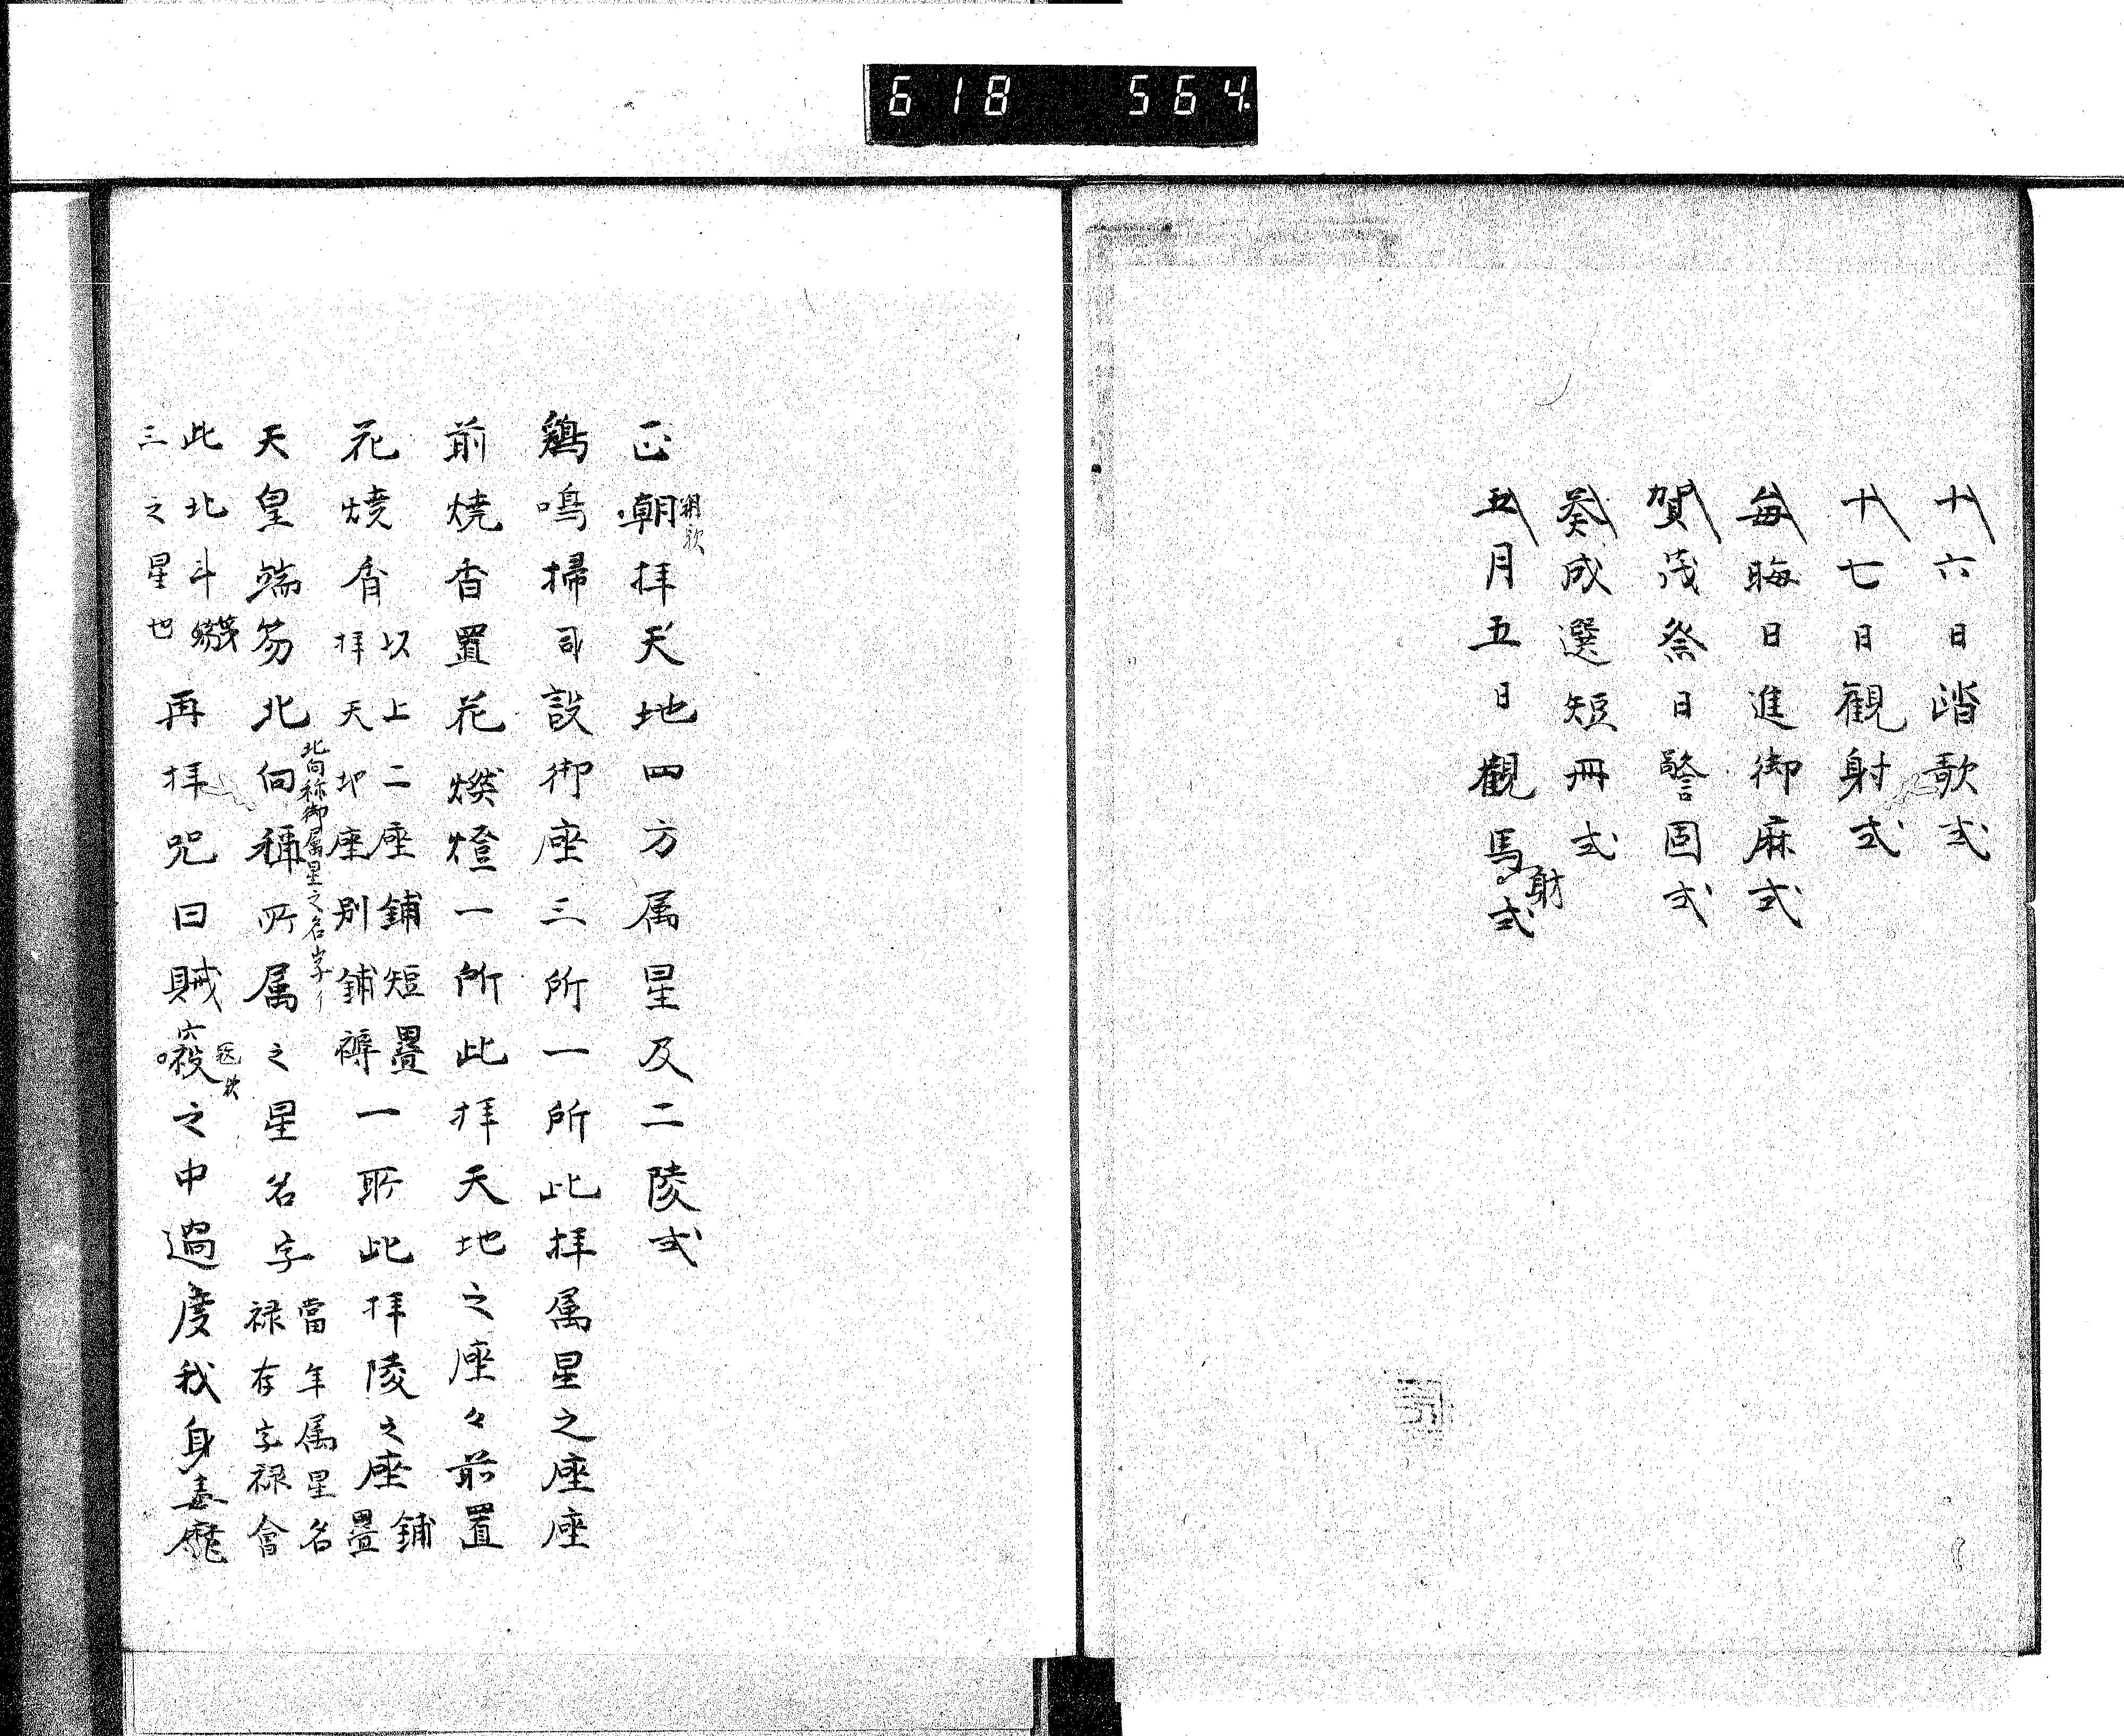 618 564
十六日踏歌式
十七日観射式
毎晦日進御麻式
賀茂祭日警固式
奏成選短冊式
五月五日觀馬射式
正朝拝天地四方属星及二陵式
朔歟
鶏鳴掃司設御座三所一所此拝属星之座座
前焼香置花燃燈一所此拝天地之座々前置
花焼香
以上二座鋪短疊
拝天地座別鋪褥
一所此拝陵之座
鋪
疊
天皇端笏北向稱所属之星名字
北向称御属星之名字
當年属星名
禄存字禄會
此北斗第
三之星也
再拝咒曰賊
之中過度我身毒魔
寇歟